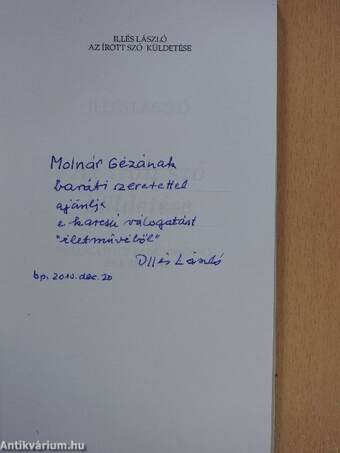 ILLÉS LÁSZLÓ
AZ ÍROTT SZÓ KÜLDETÉSE
Molnár Gézának
baráti szeretettel
ajánlja
e karcsú válogatást
"életművéből"
Illés László
bp. 2010. dec. 20
Antikvárium.hu